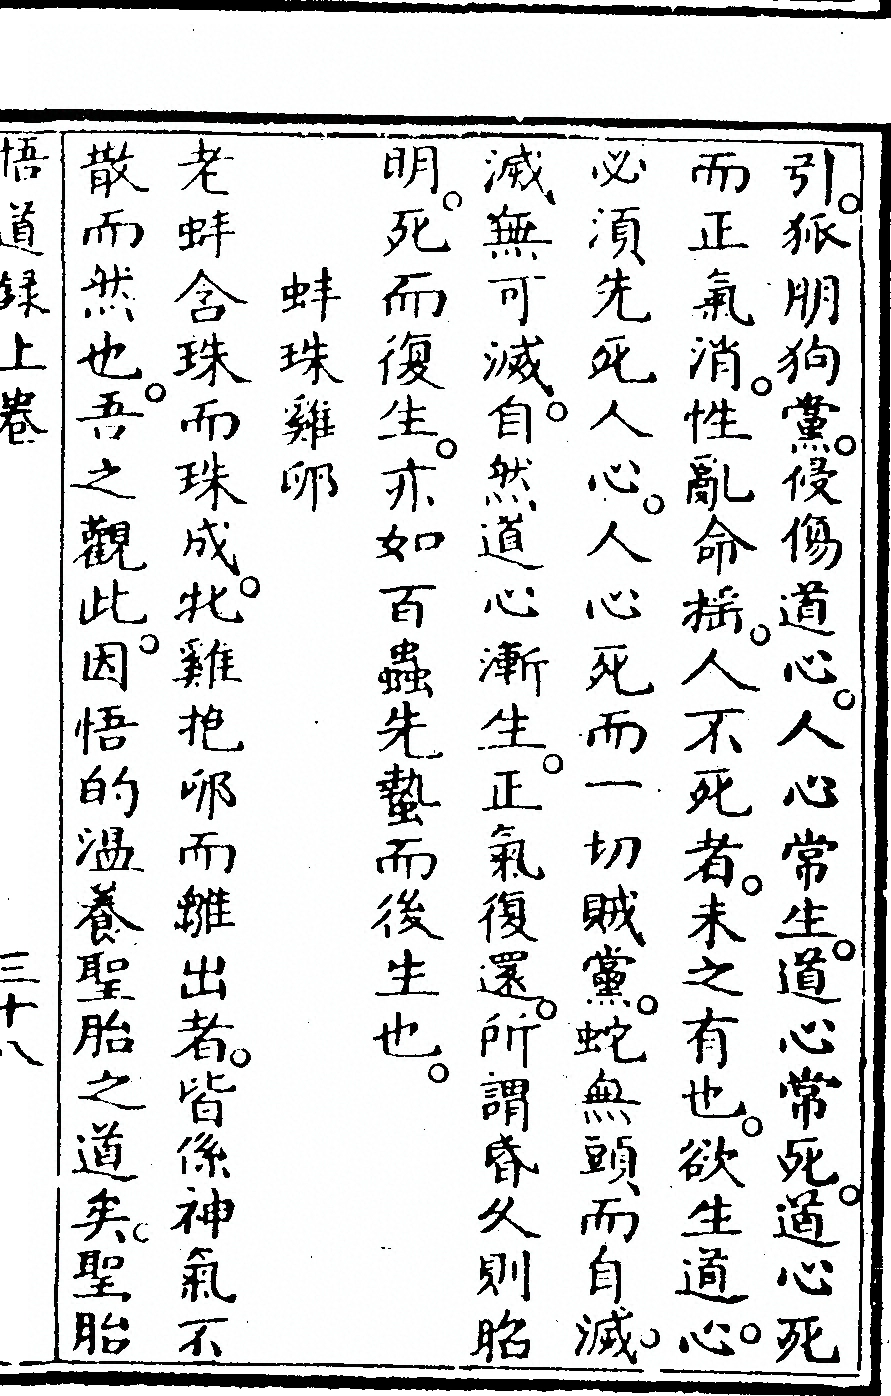 引。狐朋狗黨。侵傷道心。人心常生。道心常死。道心死
而正氣消。性亂命搖。人不死者。未之有也。欲生道心。
必須先死人心。人心死而一切賊黨。蛇無頭而自滅。
滅無可滅。自然道心漸生。正氣復還。所謂昏久則昭
明。死而復生。亦如百蟲先蟄而後生也。
蚌珠雞卵
老蚌含珠而珠成。牝雞抱卵而雛出者。皆係神氣不
散而然也。吾之觀此。因悟的溫養聖胎之道矣。聖胎
悟道録上卷 三十八